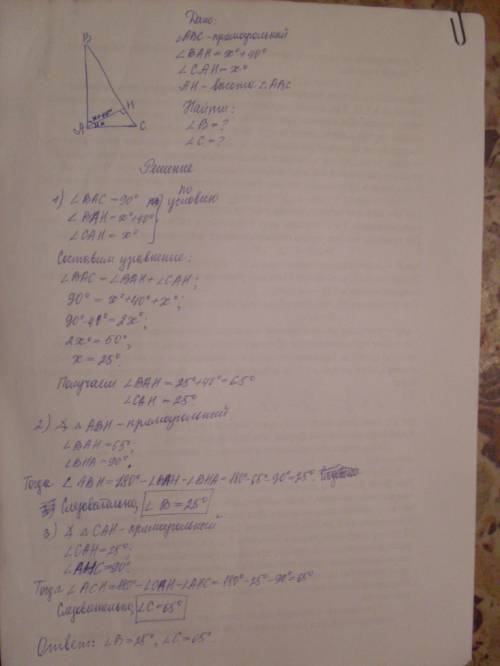 Дано:
∠ABC - прямоугольный
∠BAH = x° + 40°
∠CAH = x°
AH - высота ∠ABC
Найти:
∠B = ?
∠C = ?
B
H
A
C
x+40°
x°
Решение
1) ∠BAC = 90° по условию
∠BAH = x° + 40°
∠CAH = x°
Составим уравнение:
∠BAC = ∠BAH + ∠CAH;
90° = x° + 40° + x°;
90° - 40° = 2x°;
2x° = 50°;
x = 25°.
Получаем ∠BAH = 25° + 40° = 65°
∠CAH = 25°
2) ∡ △ ABH - прямоугольный
∠BAH = 65°;
∠BHA = 90°,
Тогда ∠ABH = 180° - ∠BAH - ∠BHA = 180° - 65° - 90° = 25°.
Следовательно, ∠B = 25°
3) ∡ △ CAH - прямоугольный
∠CAH = 25°;
∠AHC = 90°.
Тогда ∠ACH = 180° - ∠CAH - ∠AHC = 180° - 25° - 90° = 65°
Следовательно, ∠C = 65°
Ответ: ∠B = 25°, ∠C = 65°